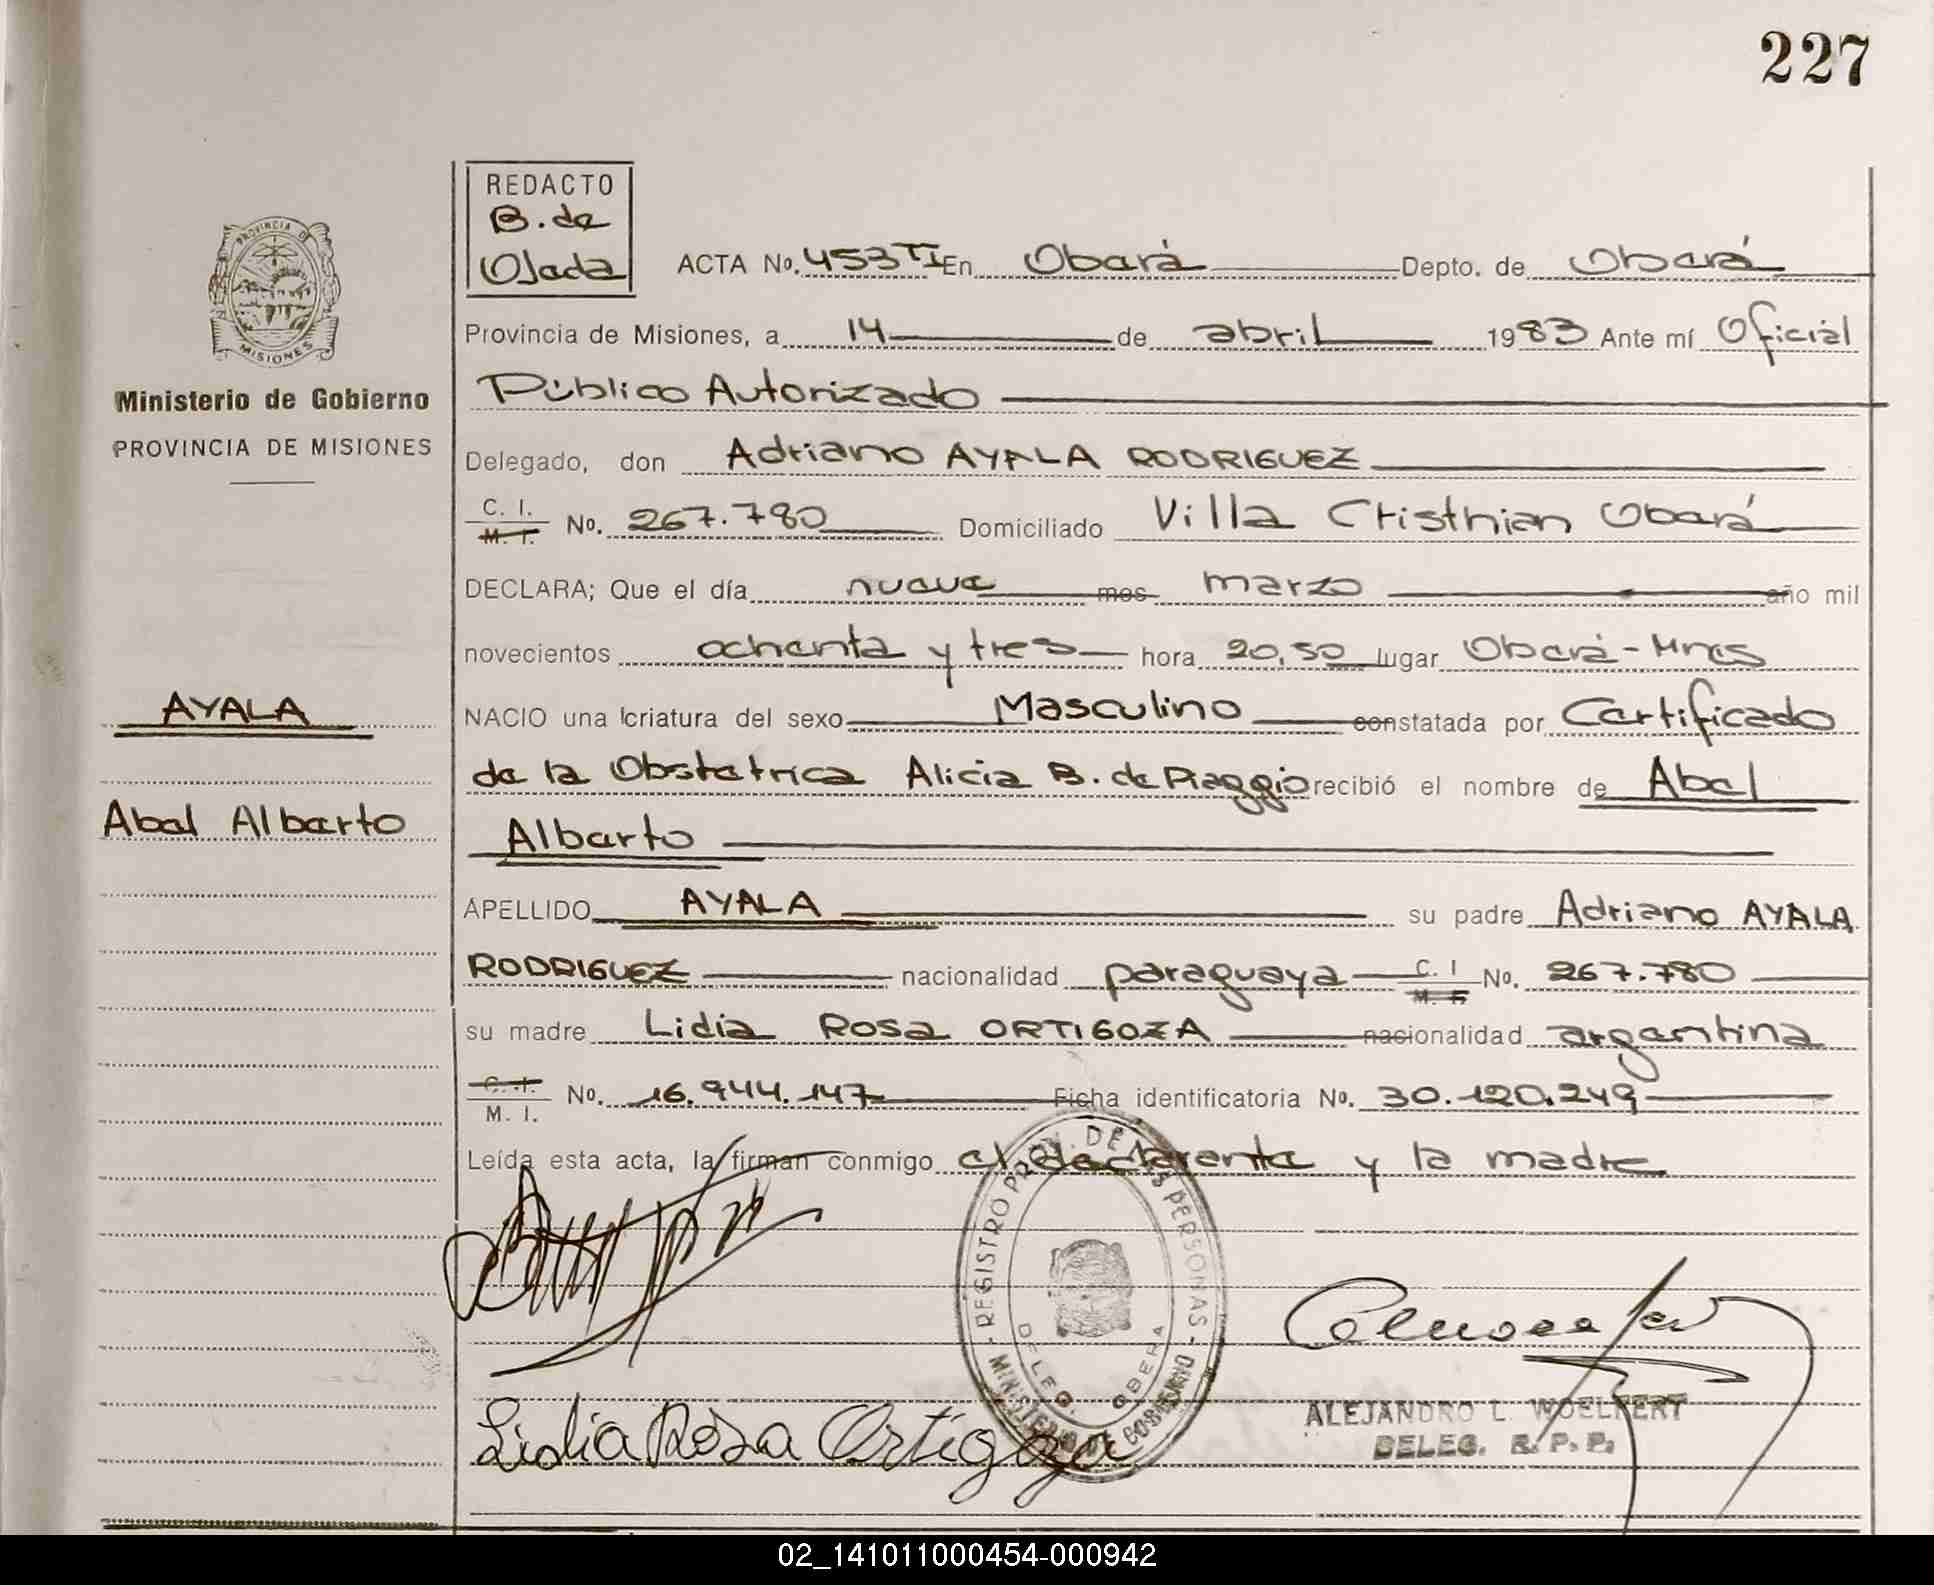 227
REDACTO
B. de
Ojeda
ACTA No. 453 TI En Oberá Depto. de Oberá
Provincia de Misiones, a 14 de abril 1983 Ante mí Oficial
Público Autorizado
Delegado, don Adriano AYALA RODRIGUEZ
C. I.
M. I. No. 267.780 Domiciliado Villa Cristhian Oberá
DECLARA; Que el día nueve mes marzo año mil
novecientos ochenta y tres hora 20,50 lugar Oberá-Mnes
NACIO una criatura del sexo Masculino constatada por Certificado
de la Obstetrica Alicia B. de Piaggio recibió el nombre de Abel
Alberto
APELLIDO AYALA su padre Adriano AYALA
RODRIGUEZ nacionalidad paraguaya C. I
M. I. No. 267.780
su madre Lidia Rosa ORTIGOZA nacionalidad argentina
C. I.
M. I. No. 16.944.147 Ficha identificatoria No. 30.120.249
Leída esta acta, la firman conmigo el declarante y la madre
Lidia Rosa Ortigoza
REGISTRO PROV. DE LAS PERSONAS
MINISTERIO DE GOBIERNO
DELEG. OBERA
ALEJANDRO L. WOELFERT
DELEG. R. P. P.
PROVINCIA DE
MISIONES
Ministerio de Gobierno
PROVINCIA DE MISIONES
AYALA
Abel Alberto
02_141011000454-000942